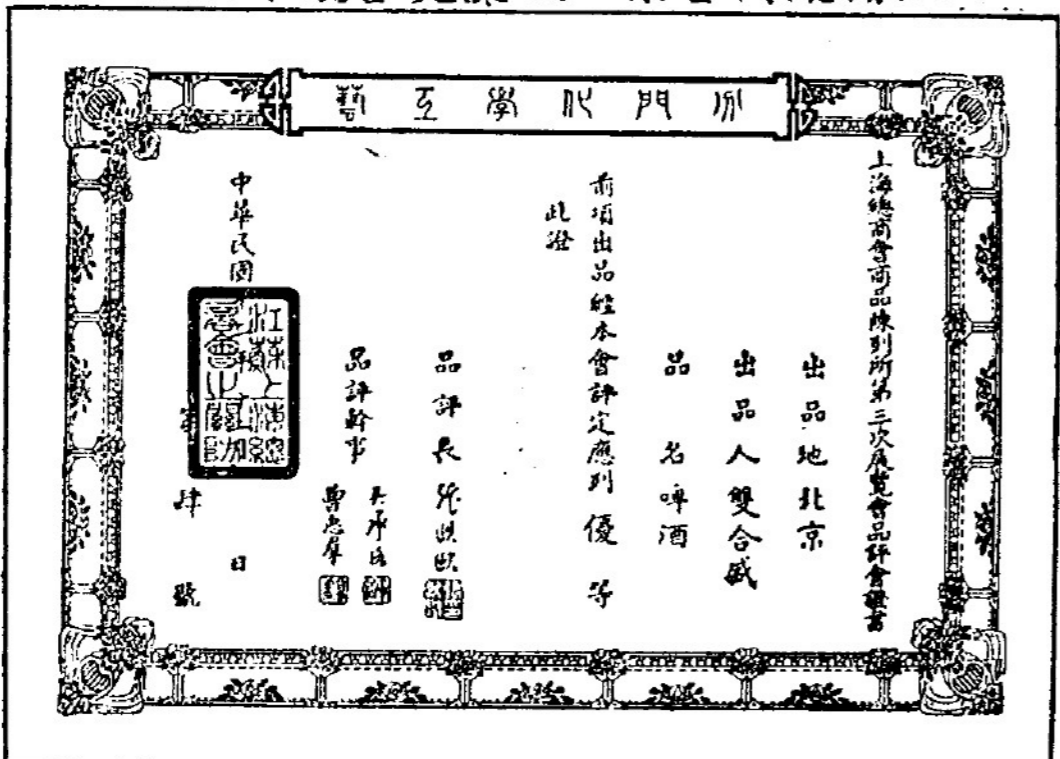 分門化學工藝
上海總商會商品陳列所第三次展覽會品評會證書
出品地北京
出品人雙合盛
品名啤酒
前項出品經本會評定應列優等
此證
品評長
品評幹事
中華民國
日
肆號